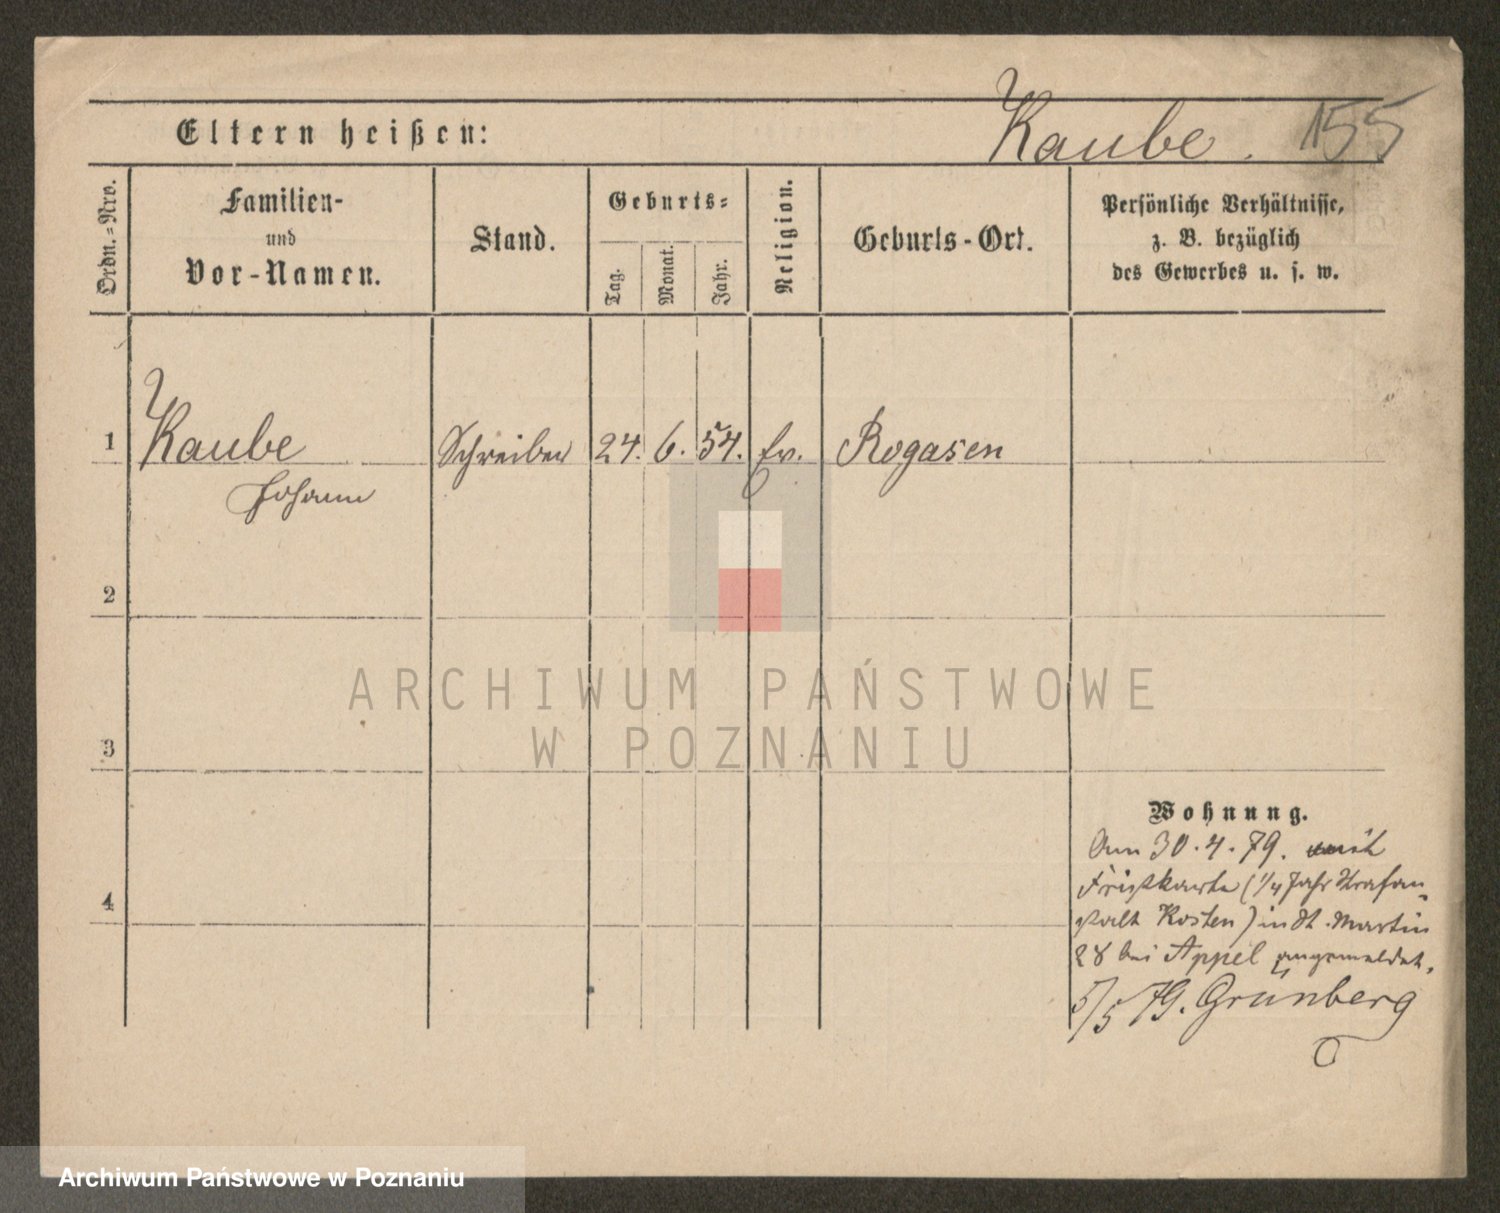 Kaube. 155
Eltern heißen:
Ordn.-Nro.
Familien-
und
Vor-Namen.
Stand.
Geburts-
Tag.
Monat.
Jahr.
Religion.
Geburts-Ort.
Persönliche Verhältnisse,
z. B. bezüglich
des Gewerbes u. s. w.
1 Kaube Schreiber 24. 6. 54. Ev. Rogasen
Johann
2
ARCHIWUM PAŃSTWOWE
W POZNANIU
3
Wohnung.
Am 30.4.79. mit
Fristkarte (1/4 Jahr Strafan-
stalt Kosten) in St. Martin
28 bei Appel angemeldet.
5/5 79. Grünberg
4
Archiwum Państwowe w Poznaniu